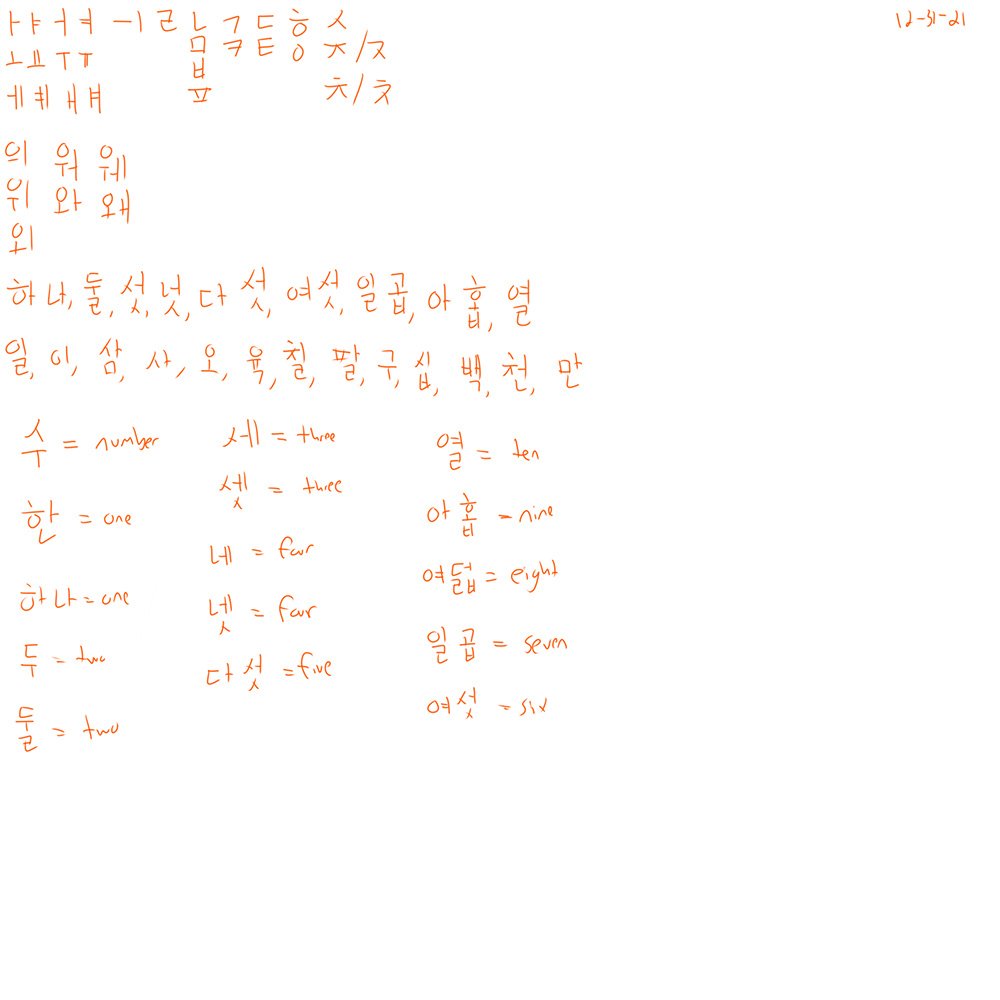 ㅏ ㅑ ㅓ ㅕ ㅡ ㅣ ㄹ ㄴ ㄱ ㄷ ㅎ ㅅ 12-31-21
ㅗ ㅛ ㅜ ㅠ ㅁ ㅋ ㅌ ㅇ ㅈ/ㅈ
ㅂ
ㅔ ㅖ ㅐ ㅒ ㅍ ㅊ/ㅊ
의 워 웨
위 와 왜
외
하나, 둘, 섯, 넛, 다섯, 여섯, 일곱, 아홉, 열
일, 이, 삼, 사, 오, 육, 칠, 팔, 구, 십, 백, 천, 만
수 = number 세 = three 열 = ten
한 = one 셋 = three 아홉 = nine
하나 = one 네 = four 여덟 = eight
두 = two 넷 = four 일곱 = seven
둘 = two 다섯 = five 여섯 = six